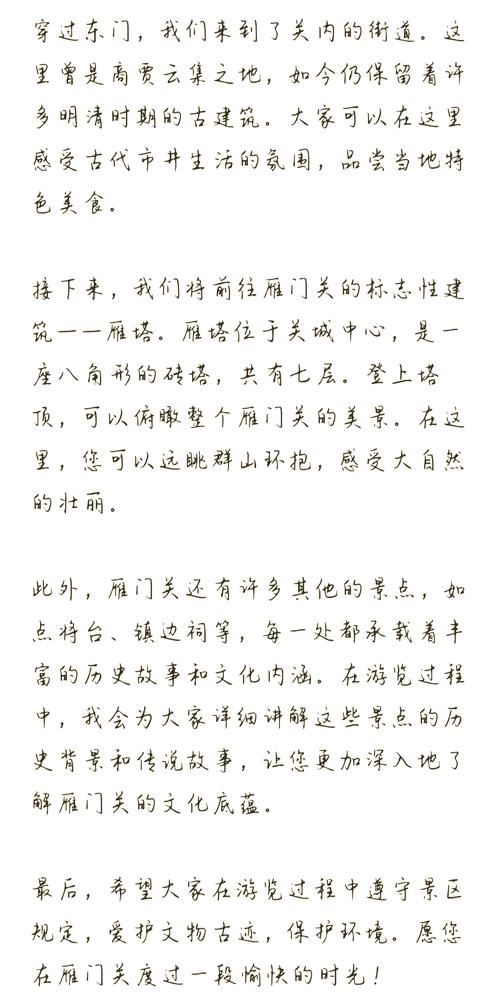 穿过东门，我们来到了关内的街道。这
里曾是商贾云集之地，如今仍保留着许
多明清时期的古建筑。大家可以在这里
感受古代市井生活的氛围，品尝当地特
色美食。
接下来，我们将前往雁门关的标志性建
筑——雁塔。雁塔位于关城中心，是一
座八角形的砖塔，共有七层。登上塔
顶，可以俯瞰整个雁门关的美景。在这
里，您可以远眺群山环抱，感受大自然
的壮丽。
此外，雁门关还有许多其他的景点，如
点将台、镇边祠等，每一处都承载着丰
富的历史故事和文化内涵。在游览过程
中，我会为大家详细讲解这些景点的历
史背景和传说故事，让您更加深入地了
解雁门关的文化底蕴。
最后，希望大家在游览过程中遵守景区
规定，爱护文物古迹，保护环境。愿您
在雁门关度过一段愉快的时光！